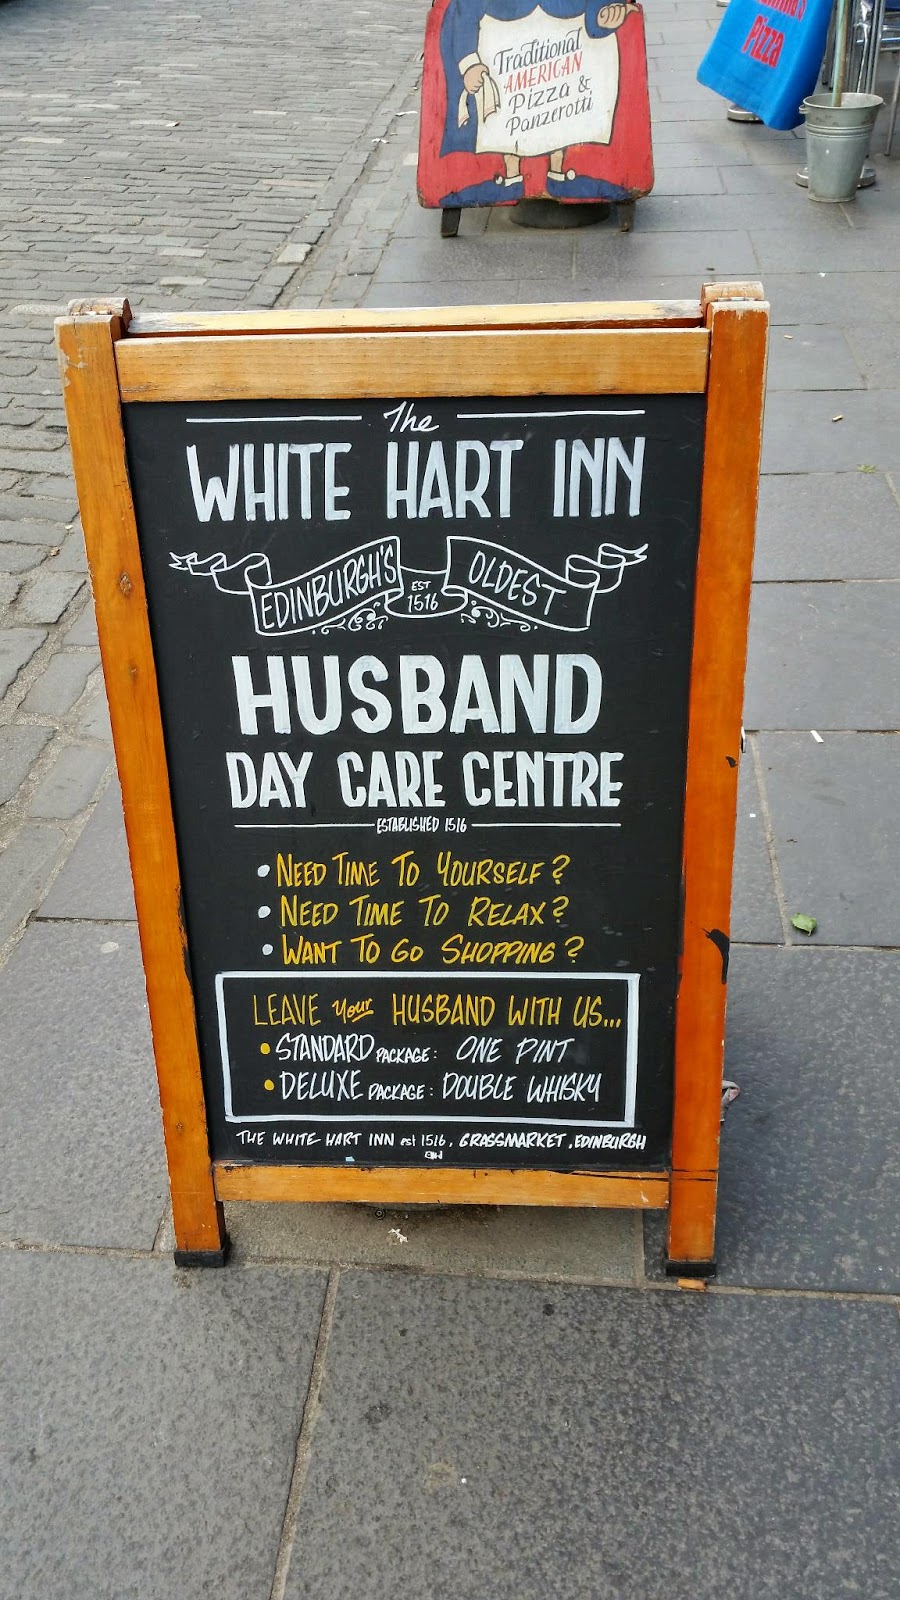 Traditional
AMERICAN
Pizza &
Panzerotti
Pizza
The
WHITE HART INN
EDINBURGH'S EST 1516 OLDEST
HUSBAND
DAY CARE CENTRE
ESTABLISHED 1516
• NEED TIME TO YOURSELF?
• NEED TIME TO RELAX?
• WANT TO GO SHOPPING?
LEAVE your HUSBAND WITH US...
• STANDARD PACKAGE: ONE PINT
• DELUXE PACKAGE: DOUBLE WHISKY
THE WHITE HART INN est 1516, GRASSMARKET, EDINBURGH